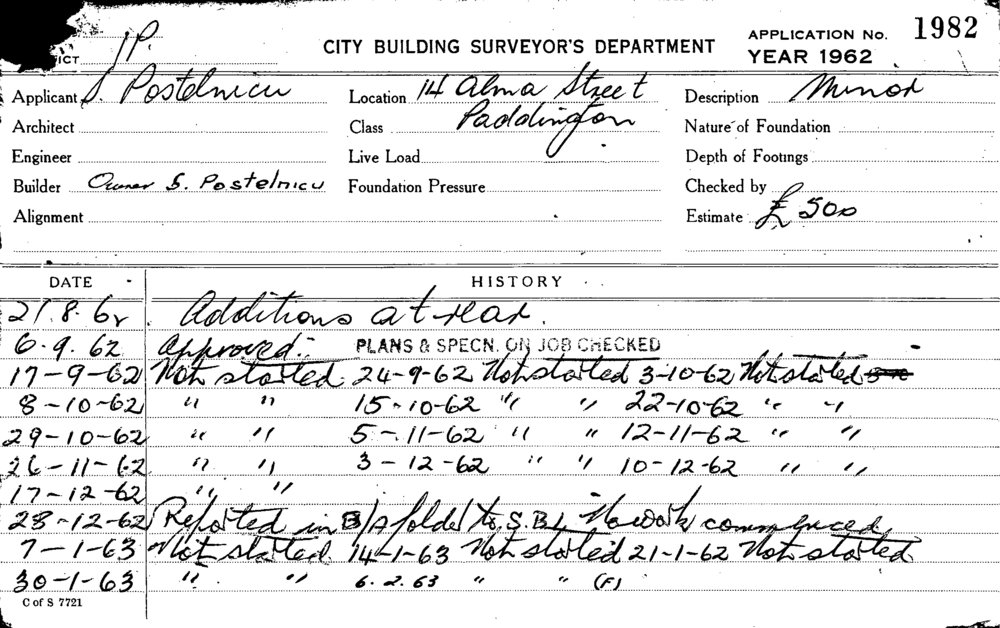 ICT JP. CITY BUILDING SURVEYOR'S DEPARTMENT APPLICATION No. 1982
YEAR 1962
Applicant S. Postelnicu Location 14 Alma Street Description Minor
Architect Class Paddington Nature of Foundation
Engineer Live Load Depth of Footings
Builder Owner S. Postelnicu Foundation Pressure Checked by
Alignment Estimate £500
DATE HISTORY
21.8.62 Additions at rear.
6.9.62 Approved:- PLANS & SPECN. ON JOB CHECKED
17-9-62 Not started 24-9-62 Not started 3-10-62 Not started
8-10-62 " " 15-10-62 " " 22-10-62 " "
29-10-62 " " 5-11-62 " " 12-11-62 " "
26-11-62 " " 3-12-62 " " 10-12-62 " "
17-12-62 " "
28-12-62 Reported in B/A folder to S.B.I. No work commenced
7-1-63 Not started 14-1-63 Not started 21-1-62 Not started
30-1-63 " " 6.2.63 " " (F)
C of S 7721